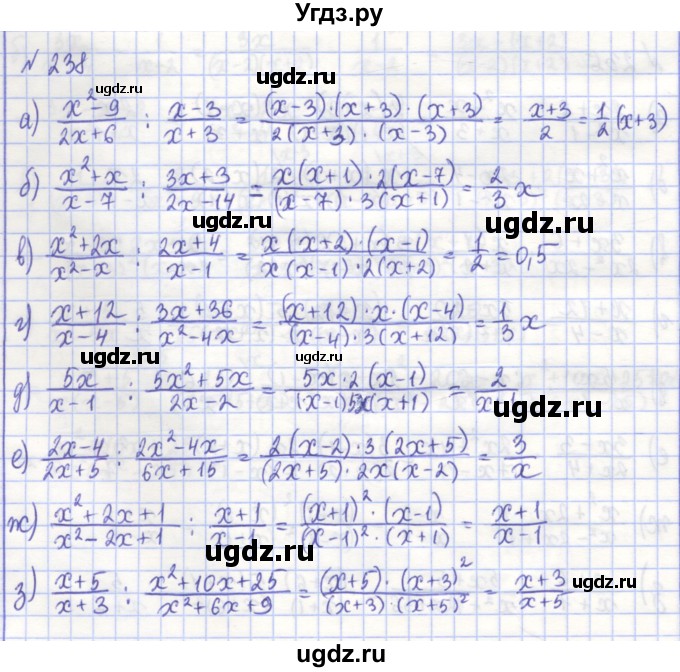 Угдз.ру
№ 238
ugdz.ru
а) (x²-9)/(2x+6) : (x-3)/(x+3) = ((x-3)·(x+3)·(x+3))/(2(x+3)·(x-3)) = (x+3)/2 = 1/2 (x+3)
ugdz.ru
б) (x²+x)/(x-7) : (3x+3)/(2x-14) = (x(x+1)·2(x-7))/((x-7)·3(x+1)) = 2/3 x
ugdz.ru ugdz.ru
в) (x²+2x)/(x²-x) : (2x+4)/(x-1) = (x(x+2)·(x-1))/(x(x-1)·2(x+2)) = 1/2 = 0,5
ugdz.ru
г) (x+12)/(x-4) : (3x+36)/(x²-4x) = ((x+12)·x·(x-4))/((x-4)·3(x+12)) = 1/3 x
ugdz.ru ugdz.ru
д) 5x/(x-1) : (5x²+5x)/(2x-2) = (5x·2(x-1))/((x-1)5x(x+1)) = 2/
ugdz.ru ugdz.ru
е) (2x-4)/(2x+5) : (2x²-4x)/(6x+15) = (2(x-2)·3(2x+5))/((2x+5)·2x(x-2)) = 3/x
ugdz.ru
ж) (x²+2x+1)/(x²-2x+1) : (x+1)/(x-1) = ((x+1)²·(x-1))/((x-1)²·(x+1)) = (x+1)/(x-1)
ugdz.ru
з) (x+5)/(x+3) : (x²+10x+25)/(x²+6x+9) = ((x+5)·(x+3)²)/((x+3)·(x+5)²) = (x+3)/(x+5)
ugdz.ru ugdz.ru
ugdz.ru